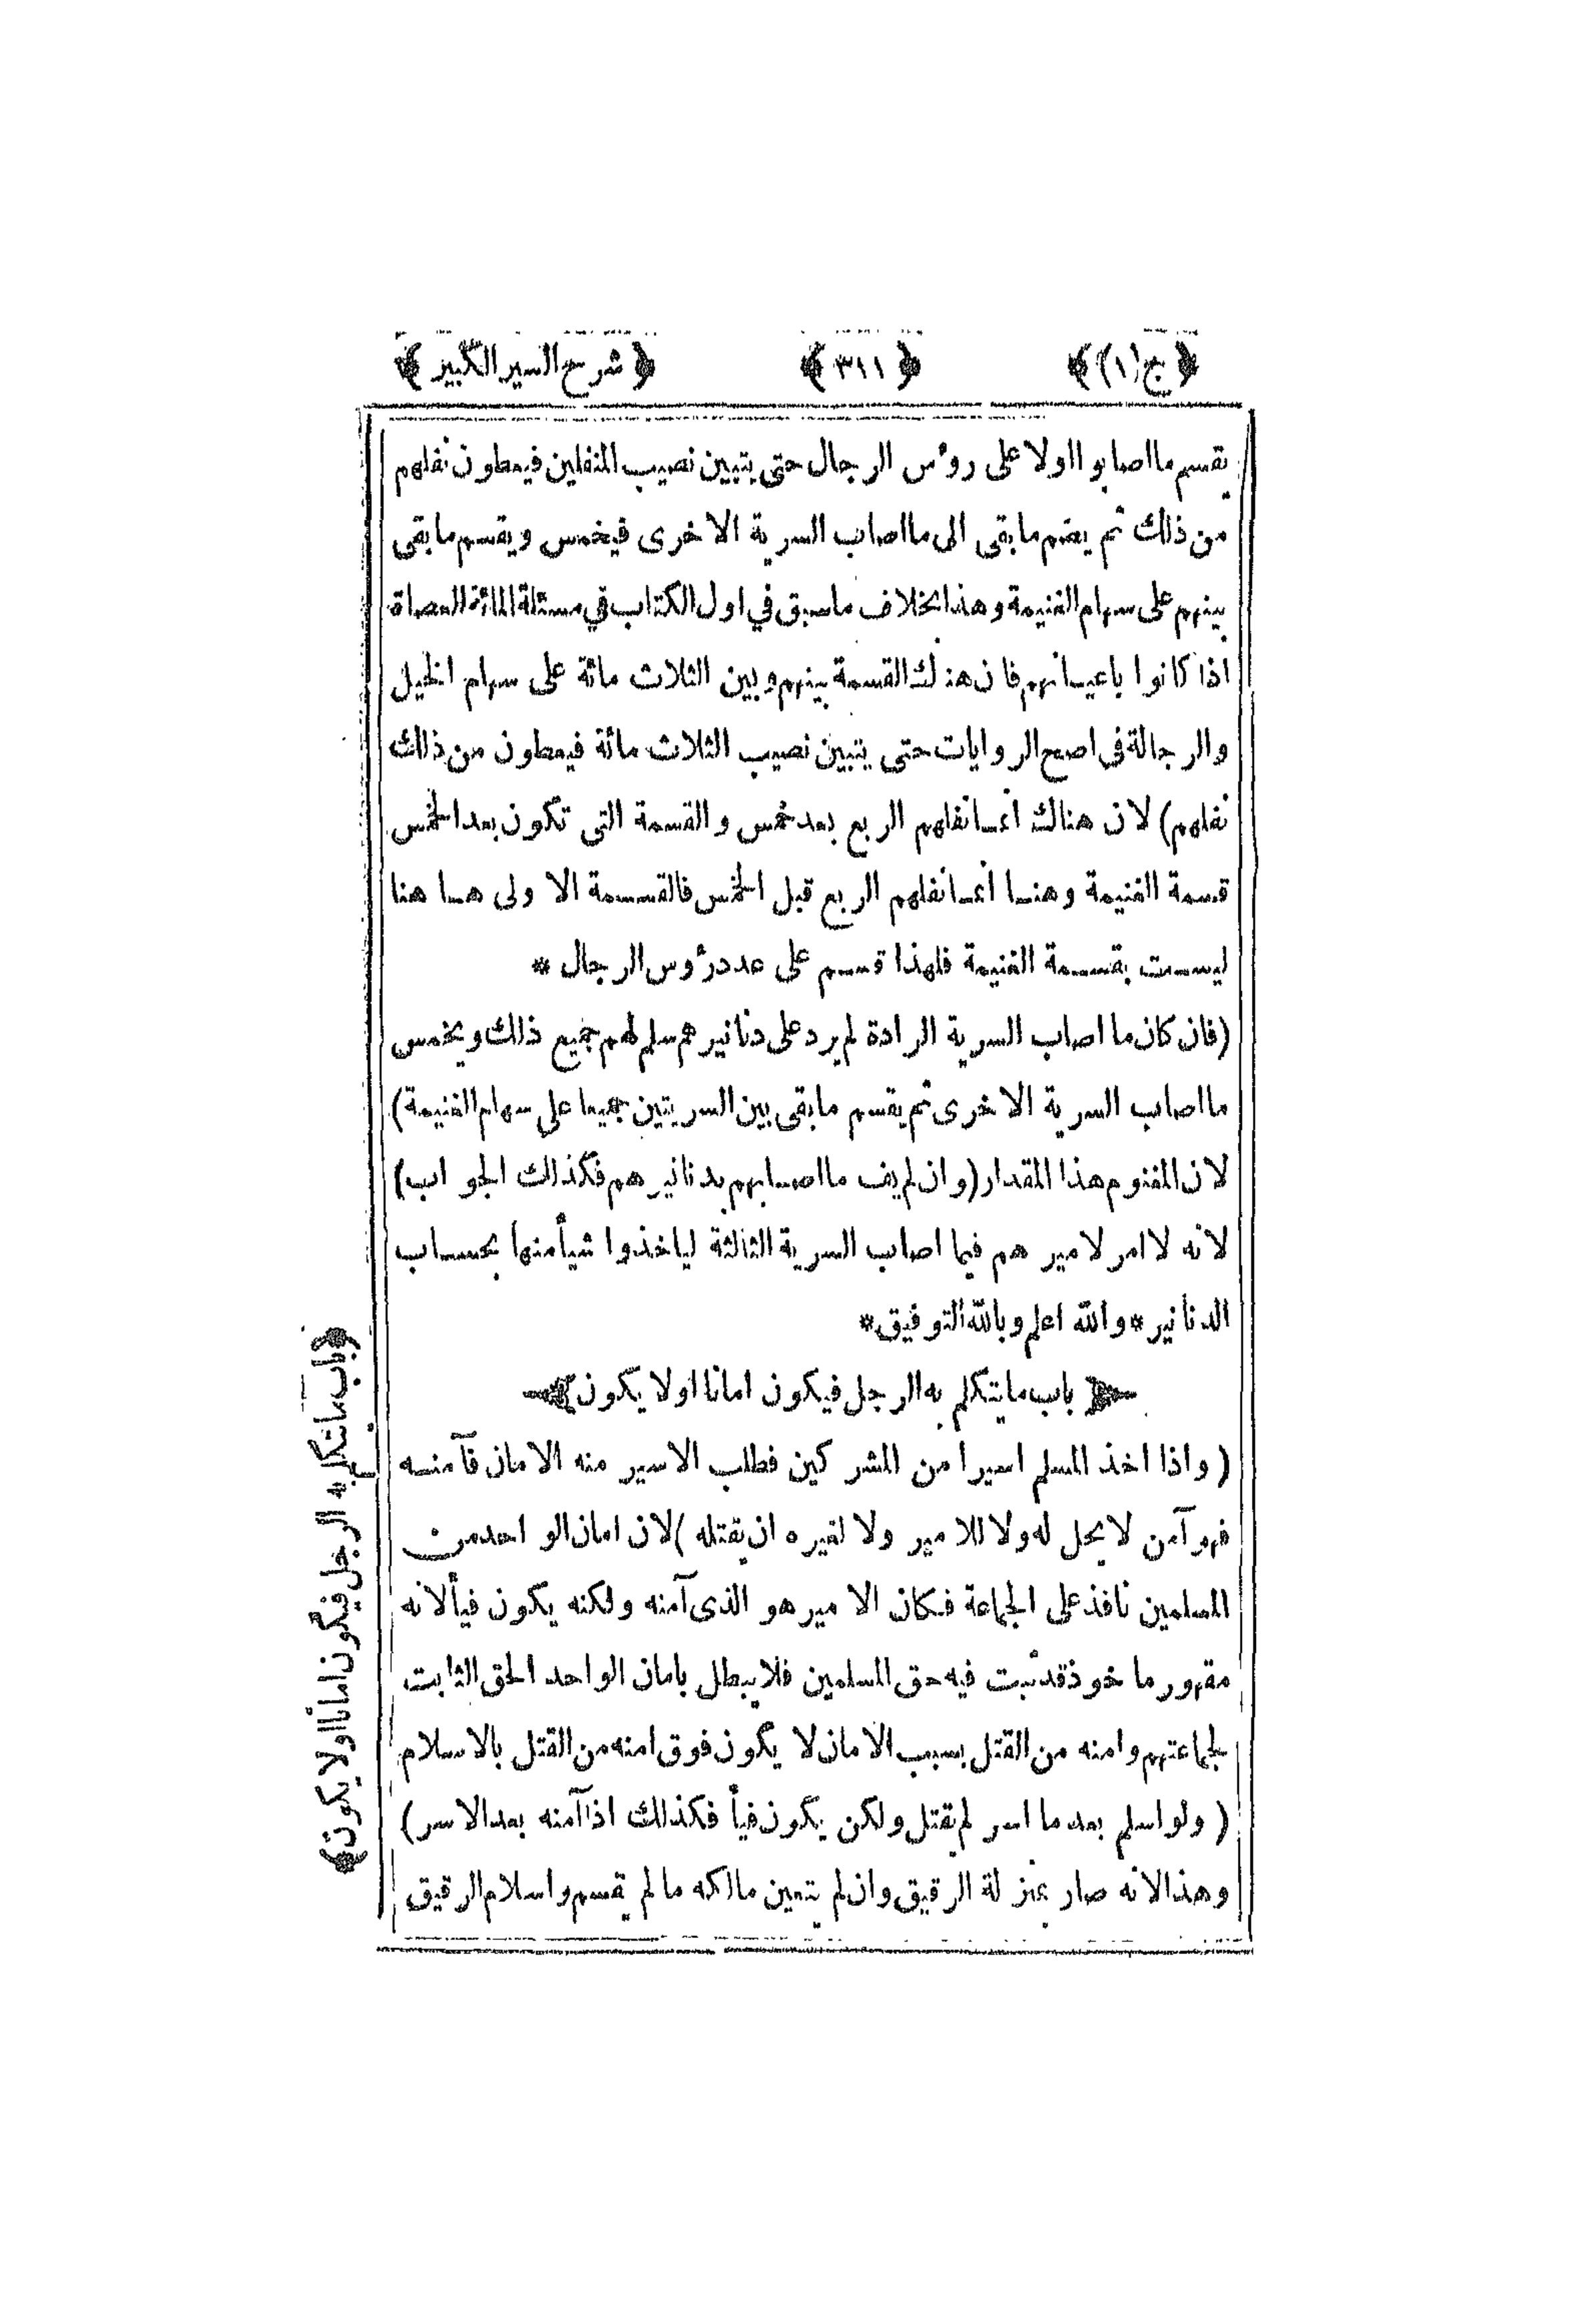 ﴿ ج (١) ﴾ ﴿ ٣١١ ﴾ ﴿ شرح السير الكبير ﴾
يقسم ما اصابوا اولا على روٴس الرجال حتى يتبين نصيب المنفلين فيعطون نفلهم
من ذلك ثم يضم ما بقى الى ما اصاب السرية الاخرى فيخمس ويقسم ما بقى
بينهم على سهام الغنيمة وهذا بخلاف ما سبق في اول الكتاب في مسئلة المائة العصاة
اذا كانوا باعيانهم فان هناك القسمة بينهم وبين الثلاث مائة على سهام الخيل
والرجالة في اصح الروايات حتى يتبين نصيب الثلاث مائة فيعطون من ذلك
نفلهم) لان هناك انما نفلهم الربع بعد خمس والقسمة التى تكون بعد الخمس
قسمة الغنيمة وهنا انما نفلهم الربع قبل الخمس فالقسمة الاولى ها هنا
ليست بقسمة الغنيمة فلهذا قسم على عدد رٶوس الرجال *
(فان كان ما اصاب السرية الرادة لم يرد على دنانيرهم سلم لهم جميع ذلك ويخمس
ما اصاب السرية الاخرى ثم يقسم ما بقى بين السريتين جميعا على سهام الغنيمة)
لان المغنوم هذا المقدار (وان لم يف ما اصابهم بدنانيرهم فكذلك الجواب)
لانه لا امر لاميرهم فيما اصاب السرية الثالثة لياخذوا شيأ منها بحساب
الدنانير * والله اعلم وبالله التوفيق *
﴿ باب ما يتكلم به الرجل فيكون امانا اولا يكون ﴾
( واذا اخذ المسلم اسيرا من المشركين فطلب الاسير منه الامان فآمنه
فهو آمن لا يحل له ولا للامير ولا لغيره ان يقتله ) لان امان الواحد من
المسلمين نافذ على الجماعة فكان الامير هو الذى آمنه ولكنه يكون فيأ لانه
مقهور ماخوذ قد ثبت فيه حق المسلمين فلا يبطل بامان الواحد الحق الثابت
لجماعتهم وامنه من القتل بسبب الامان لا يكون فوق امنه من القتل بالاسلام
( ولو اسلم بعد ما اسر لم يقتل ولكن يكون فيأ فكذلك اذا آمنه بعد الاسر )
وهذا لانه صار بمنزلة الرقيق وان لم يتعين مالكه ما لم يقسم واسلام الرقيق
﴿ باب ما يتكلم به الرجل فيكون امانا اولا يكون ﴾